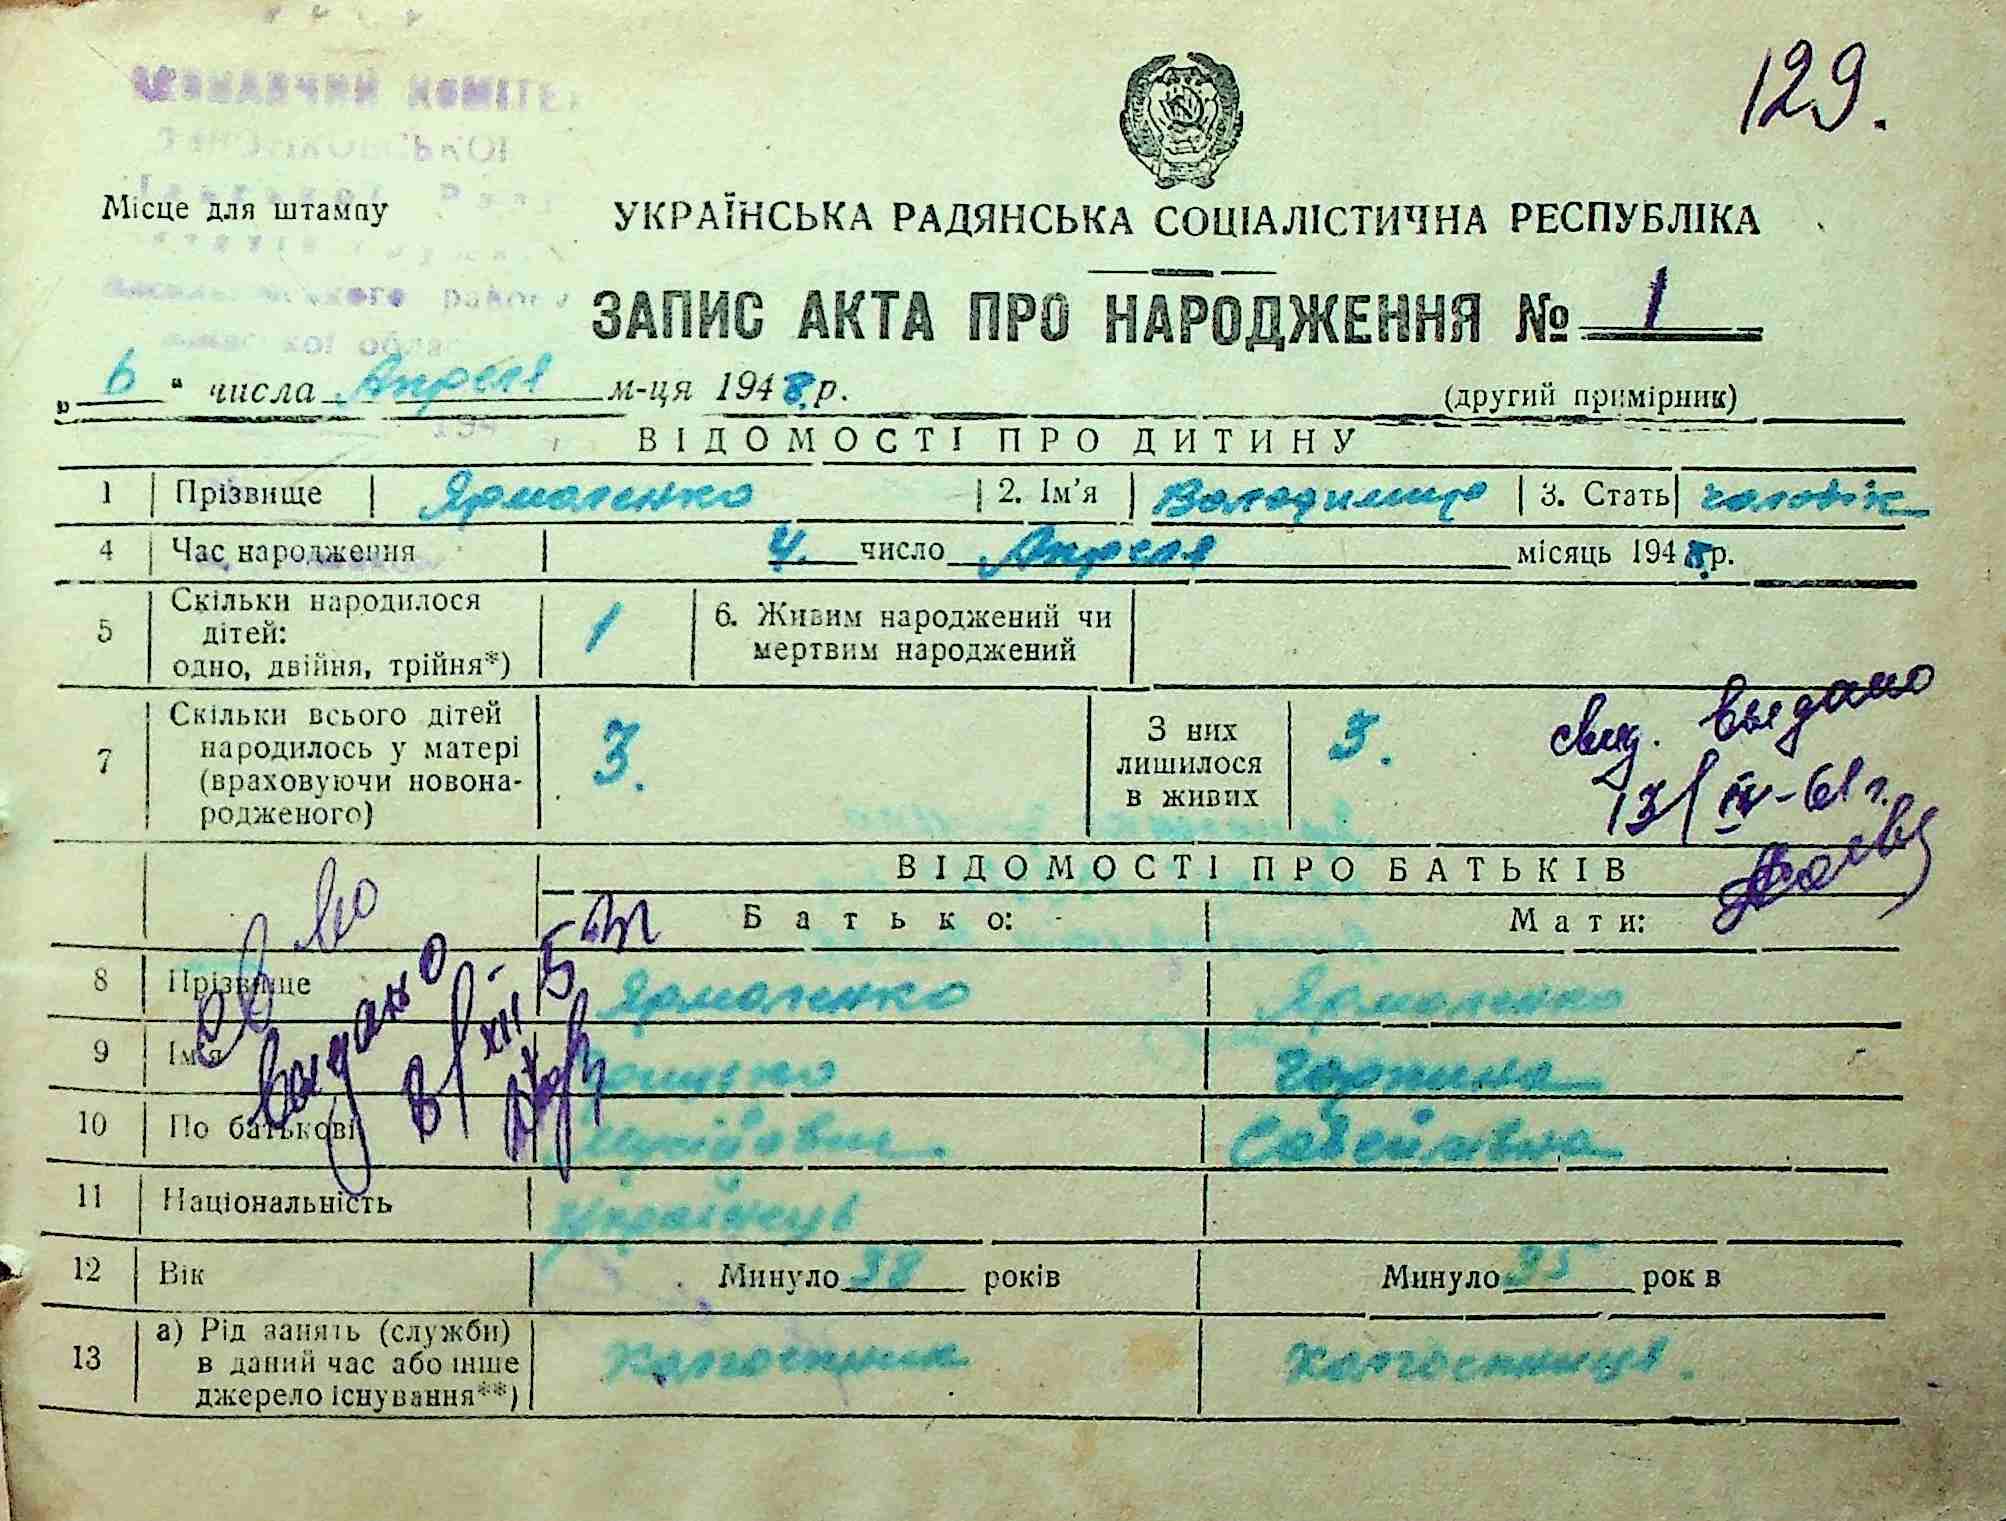 129.
Місце для штампу
УКРАЇНСЬКА РАДЯНСЬКА СОЦІАЛІСТИЧНА РЕСПУБЛІКА
ЗАПИС АКТА ПРО НАРОДЖЕННЯ № 1
„ 6 “ числа Апреля м-ця 1948 р.
(другий примірник)
ВІДОМОСТІ ПРО ДИТИНУ
1 Прізвище Ярмоленко 2. Ім'я Володимир 3. Стать чоловік
4 Час народження 4. число Апреля місяць 1948 р.
5 Скільки народилося дітей: одно, двійня, трійня*) 1 6. Живим народжений чи мертвим народжений
7 Скільки всього дітей народилось у матері (враховуючи новонародженого) 3. З них лишилося в живих 3.
свид. выдано
13/IV-61 г.
ВІДОМОСТІ ПРО БАТЬКІВ
Батько: Мати:
св во
выдано
8/XII-53
8 Прізвище Ярмоленко Ярмоленко
9 Ім'я
10 По батькові
11 Національність Українець
12 Вік Минуло 38 років Минуло 35 рок в
13 а) Рід занять (служби) в даний час або інше джерело існування**) Колгоспник Колгоспниця.